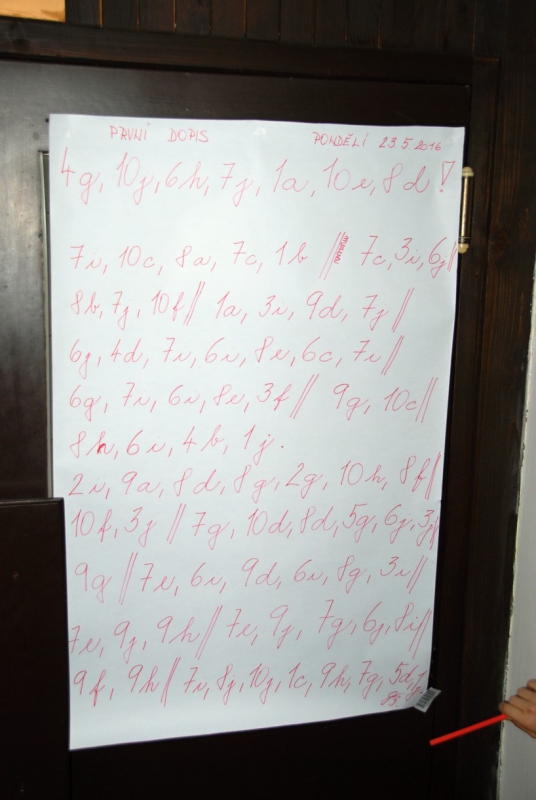 PRVNÍ DOPIS PONDĚLÍ 23.5.2016
4g, 10j, 6h, 7j, 1a, 10e, 8d!
7i, 10c, 8a, 7c, 1b // 7c, 3i, 6j//
8b, 7j, 10f// 1a, 3i, 9d, 7j //
6j, 4d, 7i, 6i, 8e, 6c, 7i//
6g, 7i, 6i, 8e, 3f// 9g, 10c//
8h, 6i, 4b, 1j.
2i, 9a, 8d, 8g, 2g, 10h, 8f//
10f, 3j // 7g, 10d, 8d, 5g, 6j, 3j
9g // 7e, 6i, 9d, 6i, 8g, 3i//
7e, 9j, 9h// 7e, 9j, 7g, 6j, 8i//
9f, 9h// 7i, 8j, 10j, 1c, 9h, 7g, 5d,